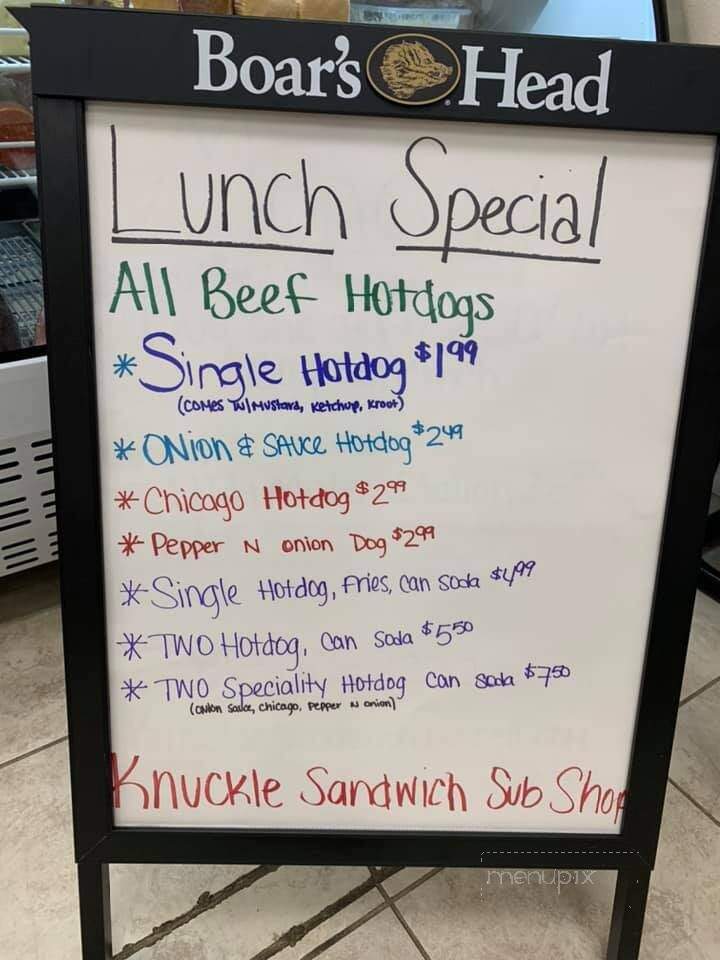 Boar's Head
Lunch Special
All Beef Hotdogs
* Single Hotdog $1.99
(comes w/mustard, ketchup, kroot)
* Onion & Sauce Hotdog $2.49
* Chicago Hotdog $2.99
* Pepper N onion Dog $2.99
* Single Hotdog, Fries, Can Soda $4.99
* TWO Hotdog, Can Soda $5.50
* TWO Speciality Hotdog Can Soda $7.50
(onion sauce, chicago, Pepper N onion)
Knuckle Sandwich Sub Shop
menupix